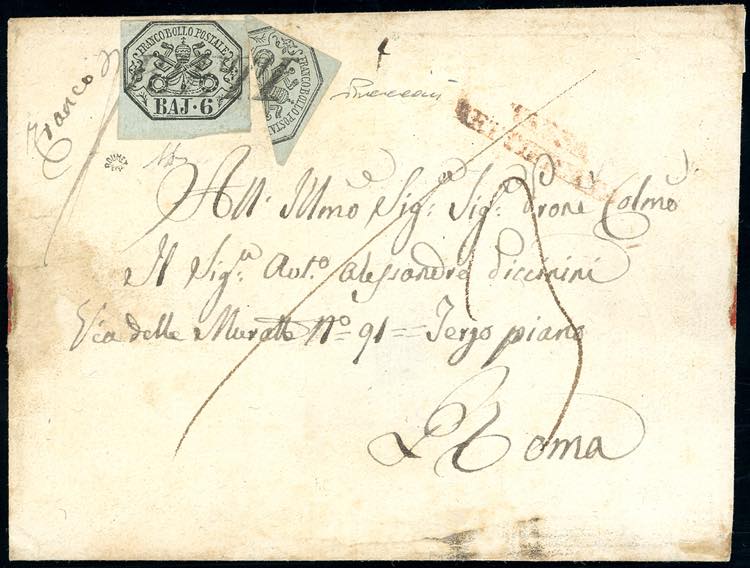 FRANCO BOLLO POSTALE
BAJ. 6
FRANCO BOLLO POSTA
Franco
All' Illmo Sigr: Sigr: Prone Colmo
Il Sigr. Avto. Alessandro Piccinini
Via delle Muratte No. 91 = Terzo piano
Roma